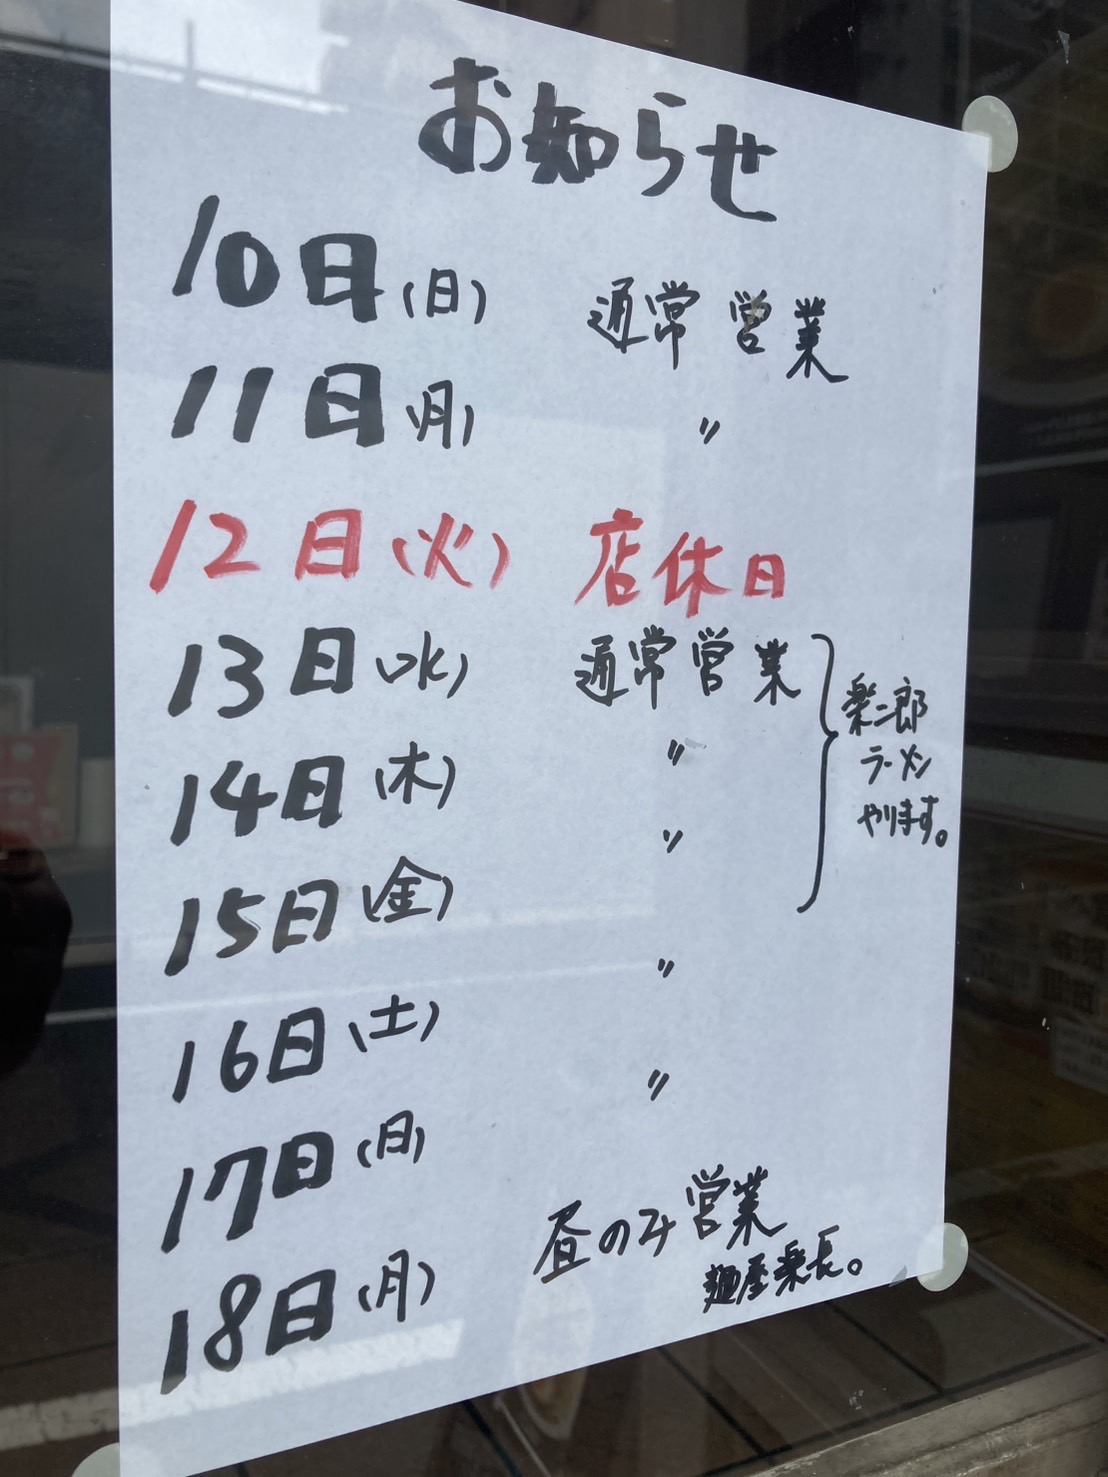 お知らせ
10日(日) 通常営業
11日(月) 〃
12日(火) 店休日
13日(水) 通常営業
14日(木) 〃
15日(金) 〃
16日(土) 〃
17日(日) 〃
18日(月) 昼のみ営業
楽二郎
ラーメン
やります。
麺屋楽長。